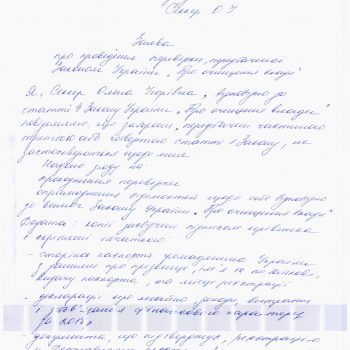 Секер О У
Заява
про проведення перевірки, передбаченої
Законом України „Про очищення влади"
Я, Секер Олена Ігорівна, відповідно до
статті 4 Закону України „Про очищення влади"
повідомляю, що заборони, передбачені частиною
або четвертою статті 1 Закону, не
застосовуються щодо мене.
Надаю згоду на:
проходження перевірки
оприлюднення відомостей щодо себе відповідно
до вимог Закону України „Про очищення влади"
Додатки: копії, засвідчені підписом керівника
і скріплені печаткою:
- сторінок паспорта громадянина України
з даними про прізвище, ім'я по батькові,
видачу паспорта, та місце реєстрації
- декларації про майно, доходи, витрати
і зобов'язання фінансового характеру
за рік
- документа, що підтверджує реєстрацію